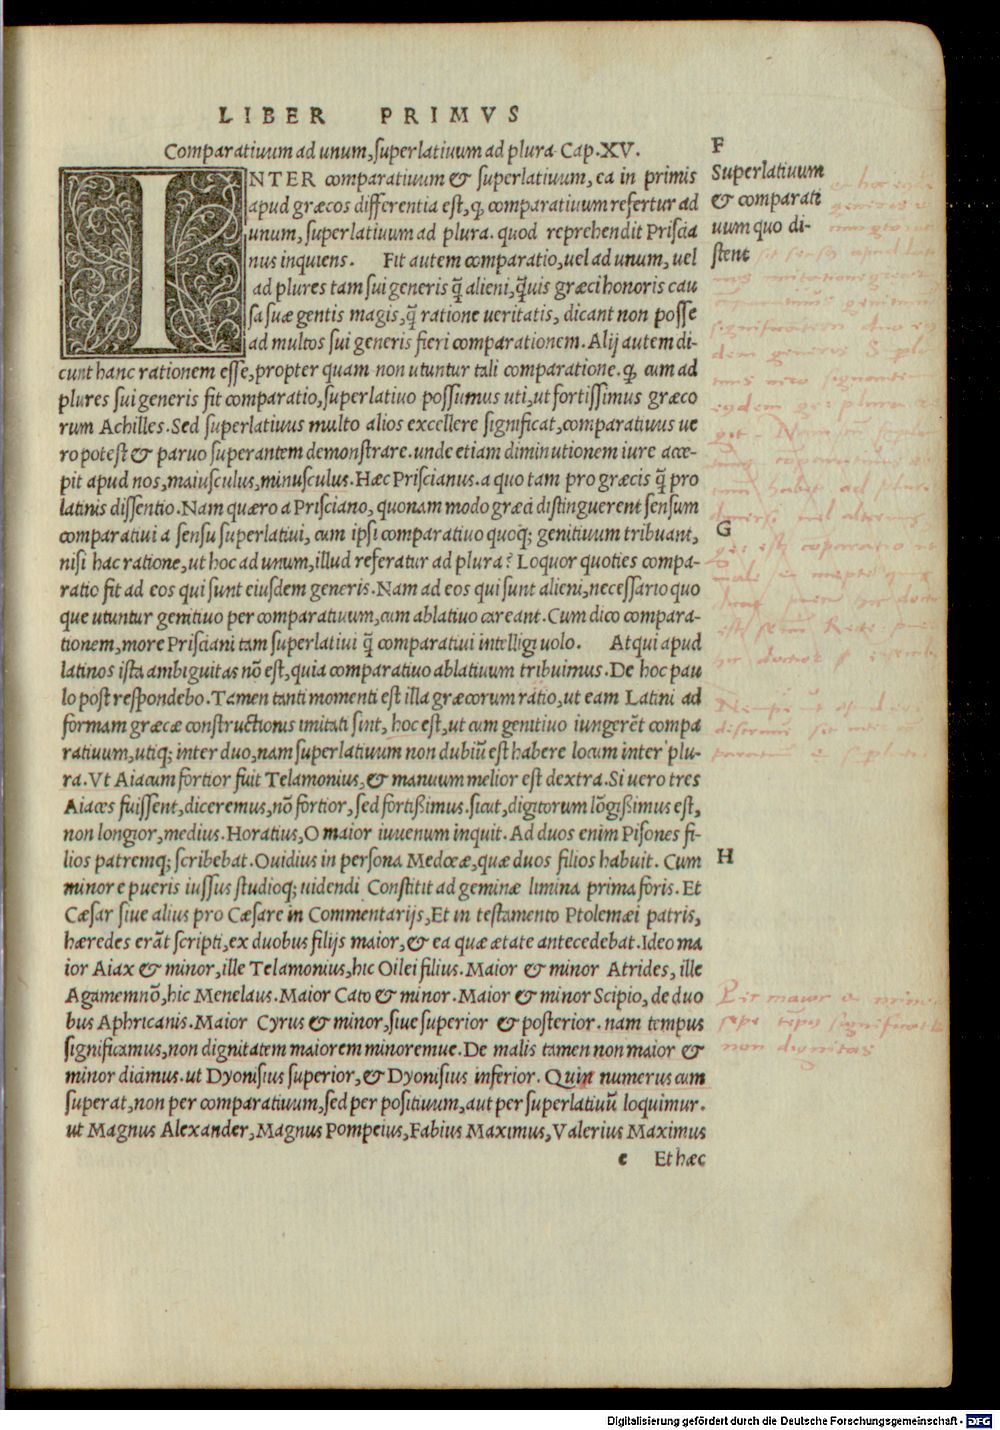 LIBER PRIMVS
Comparatiuum ad unum, superlatiuum ad plura. Cap. XV.
INTER comparatiuum & superlatiuum, ea in primis
apud græcos differentia est, q, comparatiuum refertur ad
unum, superlatiuum ad plura. quod reprehendit Priscia
nus inquiens. Fit autem comparatio, uel ad unum, uel
ad plures tam sui generis q̃ alieni, q̃uis græci honoris cau
sa suæ gentis magis, q̃ ratione ueritatis, dicant non posse
ad multos sui generis fieri comparationem. Alij autem di-
cunt hanc rationem esse, propter quam non utuntur tali comparatione. q, cum ad
plures sui generis fit comparatio, superlatiuo possumus uti, ut fortissimus græco
rum Achilles. Sed superlatiuus multo alios excellere significat, comparatiuus ue
ro potest & paruo superantem demonstrare. unde etiam diminutionem iure acce-
pit apud nos, maiusculus, minusculus. Hæc Priscianus. a quo tam pro græcis q̃ pro
latinis dissentio. Nam quæro a Prisciano, quonam modo græci distinguerent sensum
comparatiui a sensu superlatiui, cum ipsi comparatiuo quoq; genitiuum tribuant,
nisi hac ratione, ut hoc ad unum, illud referatur ad plura? Loquor quoties compa-
ratio fit ad eos qui sunt eiusdem generis. Nam ad eos qui sunt alieni, necessario quo
que utuntur genitiuo per comparatiuum, cum ablatiuo careant. Cum dico compara-
tionem, more Prisciani tam superlatiui q̃ comparatiui intelligi uolo. Atqui apud
latinos ista ambiguitas nõ est, quia comparatiuo ablatiuum tribuimus. De hoc pau
lo post respondebo. Tamen tanti momenti est illa græcorum ratio, ut eam Latini ad
formam græcæ constructionis imitati sint, hoc est, ut cum genitiuo iungerẽt compa
ratiuum, utiq; inter duo, nam superlatiuum non dubiũ est habere locum inter plu-
ra. Vt Aiacum fortior fuit Telamonius, & manuum melior est dextra. Si uero tres
Aiaces fuissent, diceremus, nõ fortior, sed fortißimus. sicut, digitorum lõgißimus est,
non longior, medius. Horatius, O maior iuuenum inquit. Ad duos enim Pisones fi-
lios patremq; scribebat. Ouidius in persona Medeæ, quæ duos filios habuit. Cum
minor e pueris iussus studioq; uidendi Constitit ad geminæ limina prima foris. Et
Cæsar siue alius pro Cæsare in Commentarijs, Et in testamento Ptolemæi patris,
hæredes erãt scripti, ex duobus filijs maior, & ea quæ ætate antecedebat. Ideo ma
ior Aiax & minor, ille Telamonius, hic Oilei filius. Maior & minor Atrides, ille
Agamemnõ, hic Menelaus. Maior Cato & minor. Maior & minor Scipio, de duo
bus Aphricanis. Maior Cyrus & minor, siue superior & posterior. nam tempus
significamus, non dignitatem maiorem minoremue. De malis tamen non maior &
minor dicimus. ut Dyonisius superior, & Dyonisius inferior. Quin numerus cum
superat, non per comparatiuum, sed per positiuum, aut per superlatiuũ loquimur.
ut Magnus Alexander, Magnus Pompeius, Fabius Maximus, Valerius Maximus
e Et hæc
F
Superlatiuum
& comparati
uum quo di-
stent
G
H
non dignitas
Digitalisierung gefördert durch die Deutsche Forschungsgemeinschaft - DFG